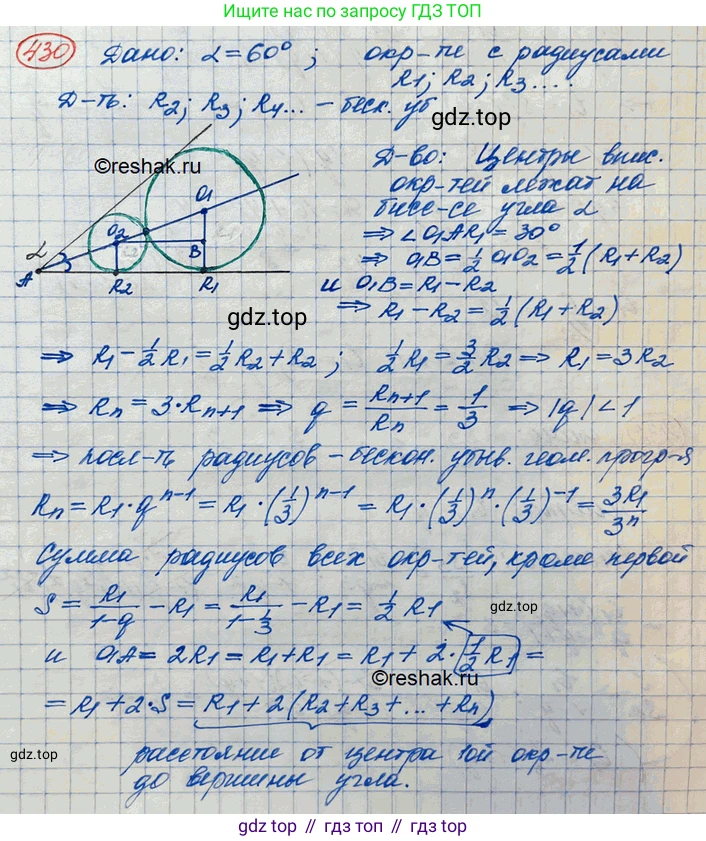 Пишите нам по запросу ГДЗ ТОП
430 Дано: α=60°; окр-ти с радиусами
R1; R2; R3....
Д-ть: R2; R3; R4... - беск. уб
gdz.top
©reshak.ru
Д-во: Центры впис.
окр-тей лежат на
бисс-се угла α
⇒ ∠O1AR1=30°
⇒ O1B=1/2 O1O2=1/2(R1+R2)
и O1B=R1-R2
⇒ R1-R2=1/2(R1+R2)
α
A
O2
O1
B
R2
R1
gdz.top
⇒ R1-1/2R1=1/2R2+R2; 1/2R1=3/2R2 ⇒ R1=3R2
⇒ Rn=3·Rn+1 ⇒ q=Rn+1/Rn=1/3 ⇒ |q|<1
⇒ посл-ть радиусов - бескон. убыв. геом. прогр-я
Rn=R1·q^(n-1)=R1·(1/3)^(n-1)=R1·(1/3)^n·(1/3)^(-1)=3R1/3^n
Сумма радиусов всех окр-тей, кроме первой
S=R1/(1-q)-R1=R1/(1-1/3)-R1=1/2R1
gdz.top
и O1A=2R1=R1+R1=R1+2·1/2R1=
©reshak.ru
=R1+2·S=R1+2(R2+R3+...+Rn)
gdz.top
расстояние от центра 1ой окр-ти
до вершины угла.
gdz top // гдз топ // gdz.top